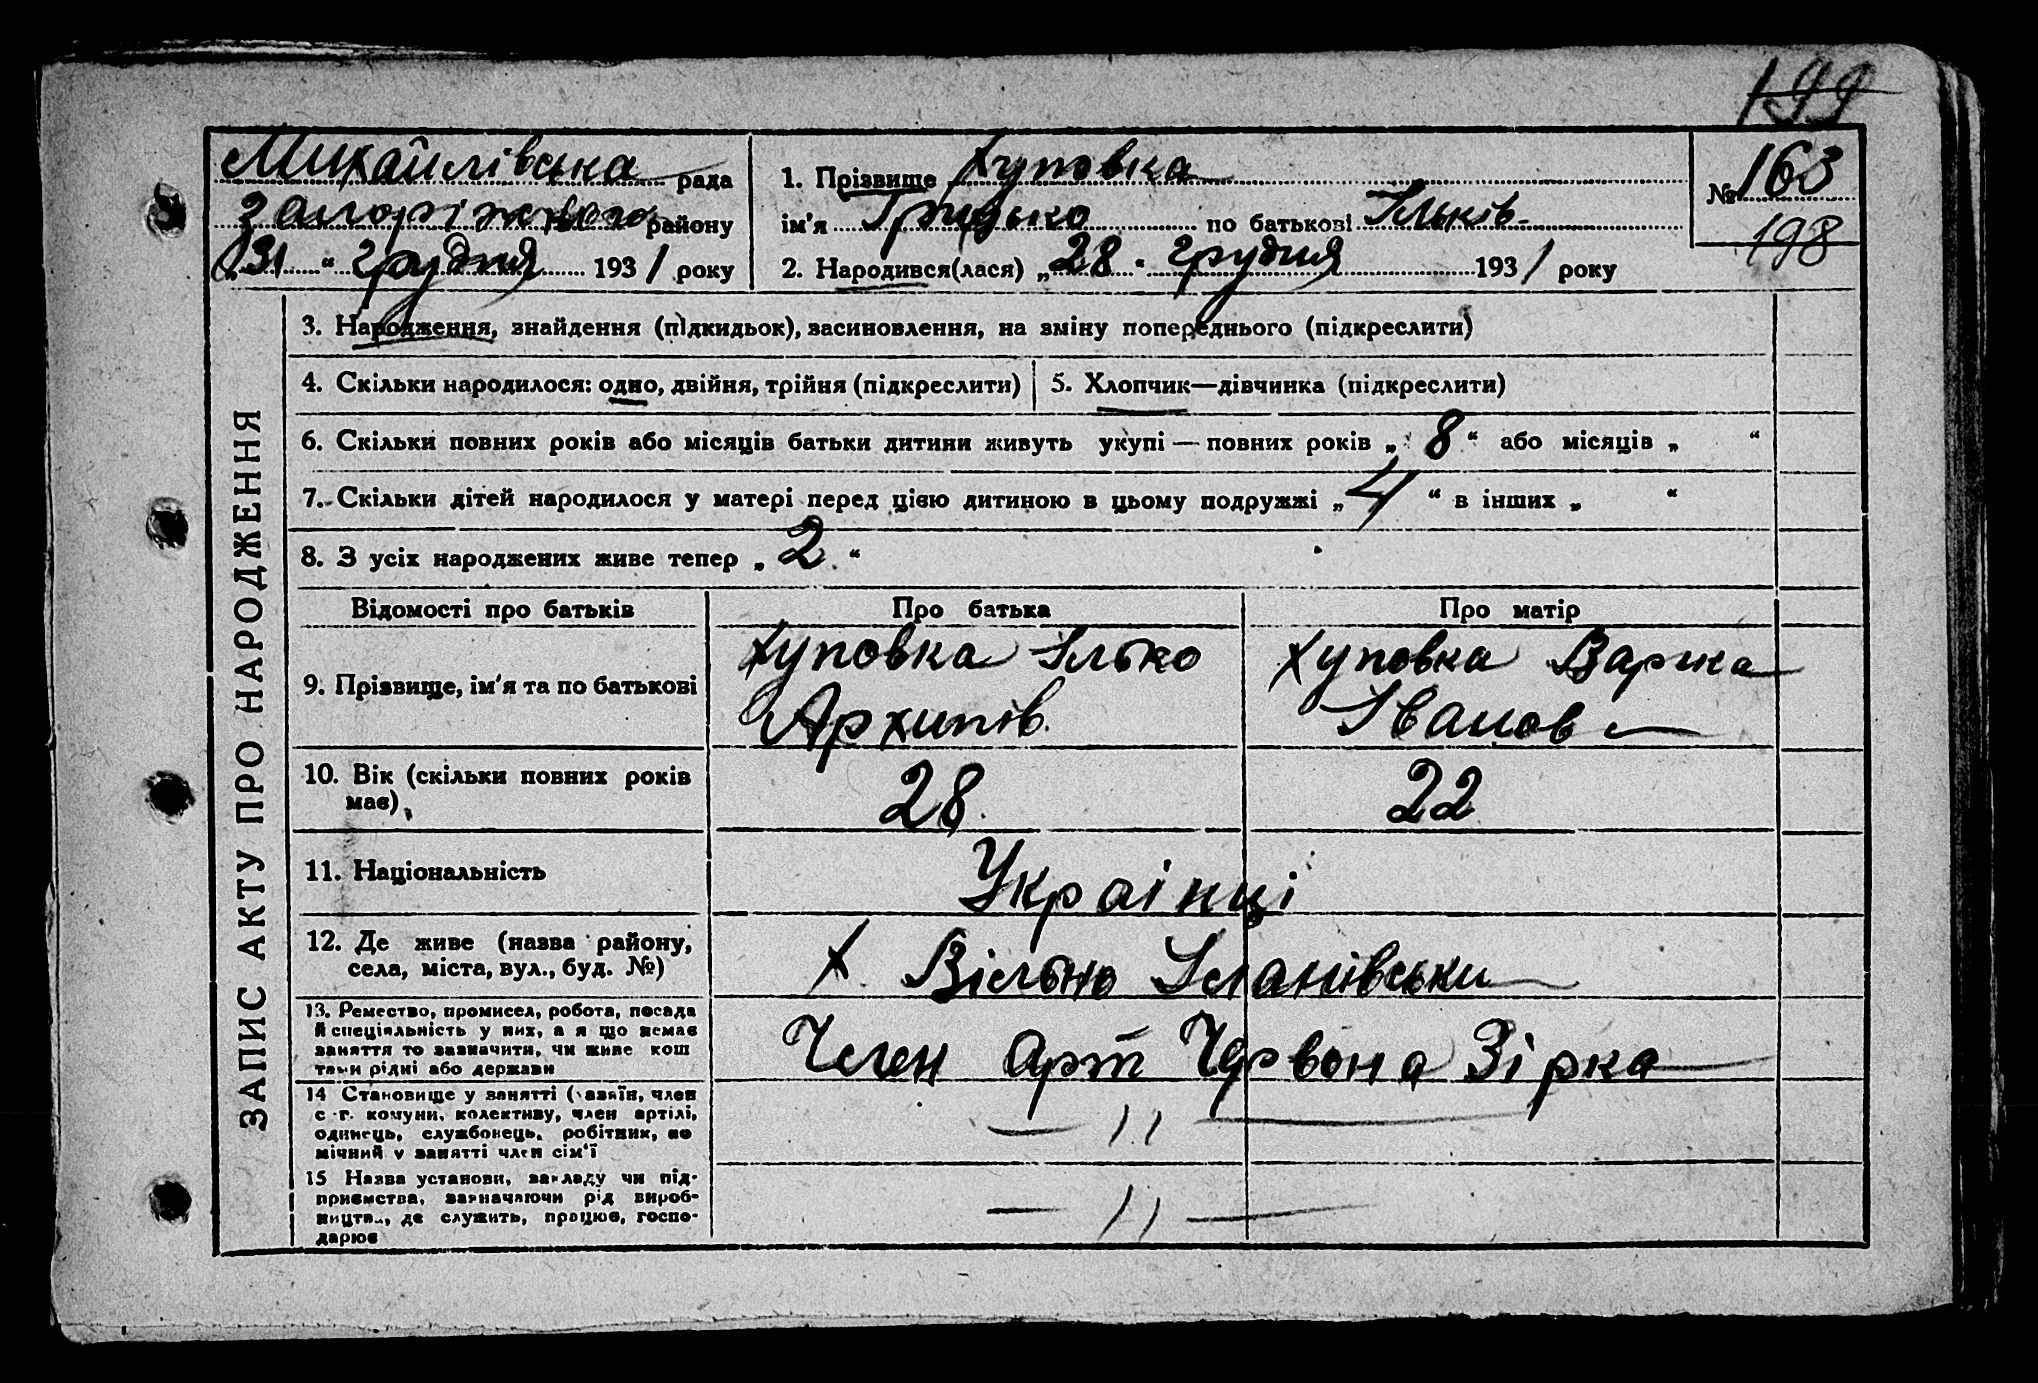 199
Михайлівська рада
Запоріжського району
„31“ грудня 1931 року
1. Прізвище Хуповка
ім'я Грицько по батькові Ільків
2. Народився(лася) „28“ грудня 1931 року
№ 163
198
ЗАПИС АКТУ ПРО НАРОДЖЕННЯ
3. Народження, знайдення (підкидьок), засиновлення, на зміну попереднього (підкреслити)
4. Скільки народилося: одно, двійня, трійня (підкреслити)
5. Хлопчик—дівчинка (підкреслити)
6. Скільки повних років або місяців батьки дитини живуть укупі — повних років „8“ або місяців „ “
7. Скільки дітей народилося у матері перед цією дитиною в цьому подружжі „4“ в інших „ “
8. З усіх народжених живе тепер „2“
Відомості про батьків Про батька Про матір
9. Прізвище, ім'я та по батькові
Хуповка Ілько
Архипів
Хуповка Варка
Іванов
10. Вік (скільки повних років
має)
28 22
11. Національність
Українці
12. Де живе (назва району,
села, міста, вул., буд. №)
Х Вільно Уланівськи
13. Ремество, промисел, робота, посада
й спеціяльність у них, а я що немає
заняття то зазначити, чи живе кош
тами рідні або держави
Член Арт Червона Зірка
14 Становище у занятті (хазяїн, член
с-г. комуни, колективу, член артілі,
одинець, службовець, робітник, по
мічний у занятті член сім'ї
— 11 —
15 Назва установи, закладу чи під-
приємства, зазначаючи рід вироб-
ництва, де служить, працює, госпо-
дарює
— 11 —